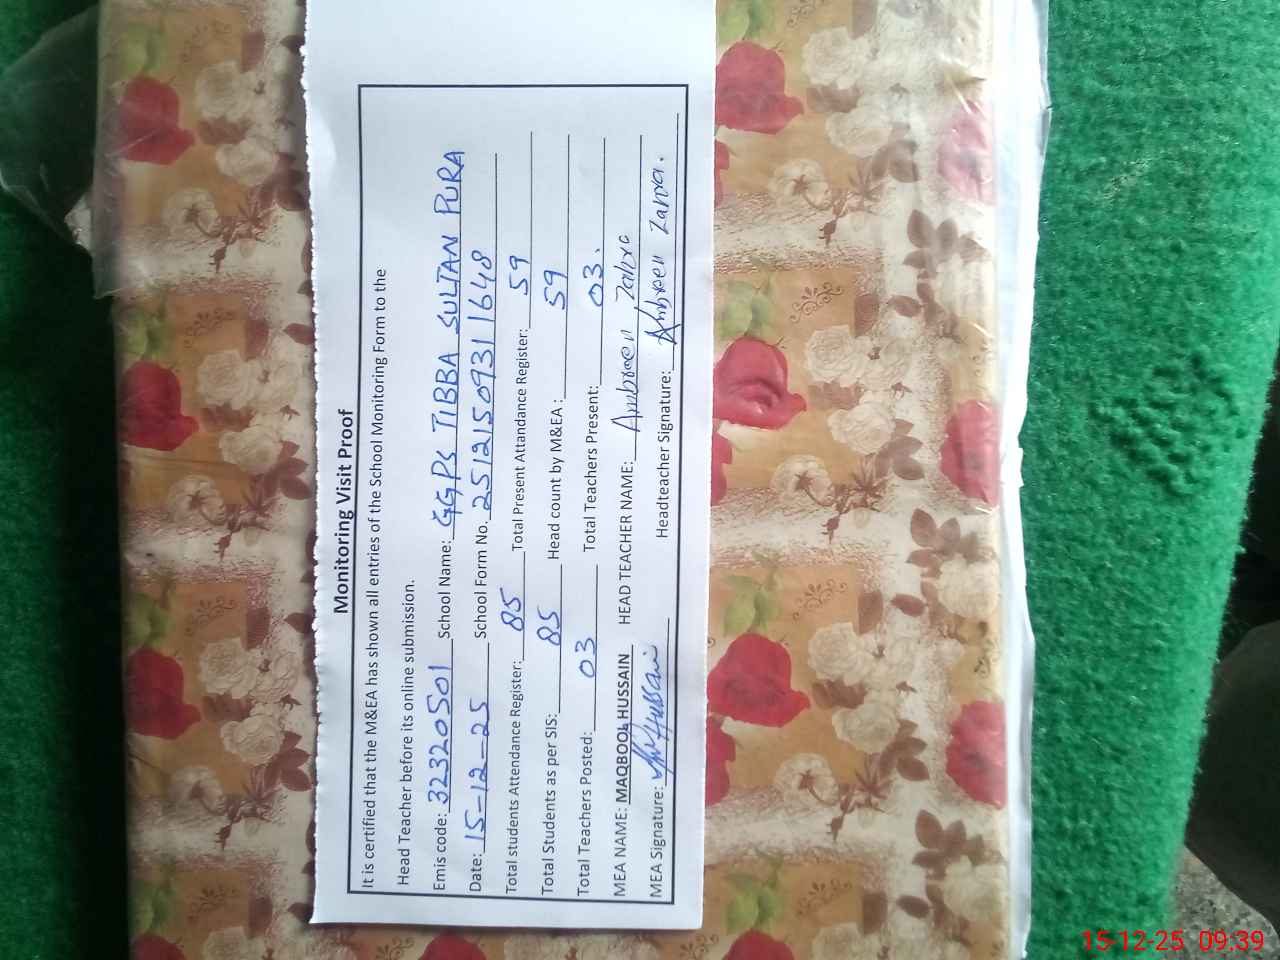 Monitoring Visit Proof
It is certified that the M&EA has shown all entries of the School Monitoring Form to the
Head Teacher before its online submission.
Emis code: 32320501 School Name: GGPS TIBBA SULTAN PURA
Date: 15-12-25 School Form No. 25121509311648
Total students Attendance Register: 85 Total Present Attandance Register: 59
Total Students as per SIS: 85 Head count by M&EA : 59
Total Teachers Posted: 03 Total Teachers Present: 03.
MEA NAME: MAQBOOL HUSSAIN HEAD TEACHER NAME: Ambreen Zahra
MEA Signature: Hussain Headteacher Signature: Ambreen Zahra.
15-12-25 09:39